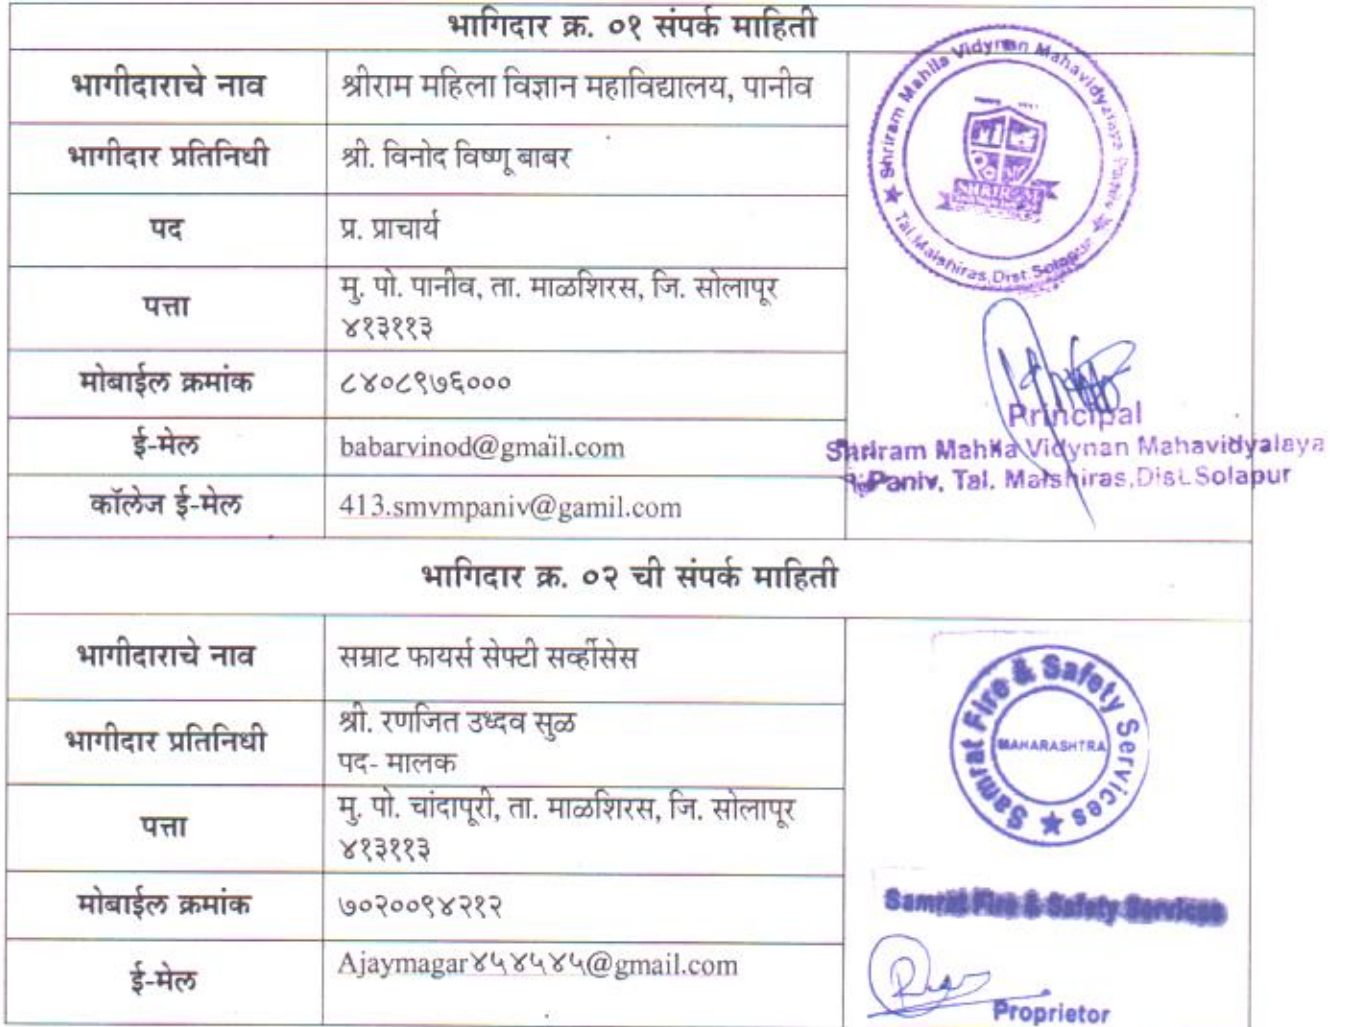 भागिदार क्र. ०१ संपर्क माहिती
भागीदाराचे नाव श्रीराम महिला विज्ञान महाविद्यालय, पानीव
भागीदार प्रतिनिधी श्री. विनोद विष्णू बाबर
पद प्र. प्राचार्य
पत्ता मु. पो. पानीव, ता. माळशिरस, जि. सोलापूर
४१३११३
मोबाईल क्रमांक ८४०८९७६०००
ई-मेल babarvinod@gmail.com
कॉलेज ई-मेल 413.smvmpaniv@gamil.com
Shriram Mahila Vidynan Mahavidyalaya Paniv
Tal.Malshiras,Dist.Solapur
SHRIRAM
Principal
Shriram Mahila Vidynan Mahavidyalaya
Paniv, Tal. Malshiras,Dist.Solapur
भागिदार क्र. ०२ ची संपर्क माहिती
भागीदाराचे नाव सम्राट फायर्स सेफ्टी सर्व्हीसेस
भागीदार प्रतिनिधी श्री. रणजित उध्दव सुळ
पद- मालक
पत्ता मु. पो. चांदापूरी, ता. माळशिरस, जि. सोलापूर
४१३११३
मोबाईल क्रमांक ७०२००९४२१२
ई-मेल Ajaymagar४५४५४५@gmail.com
Samrat Fire & Safety Services
MAHARASHTRA
Samrat Fire & Safety Services
Proprietor